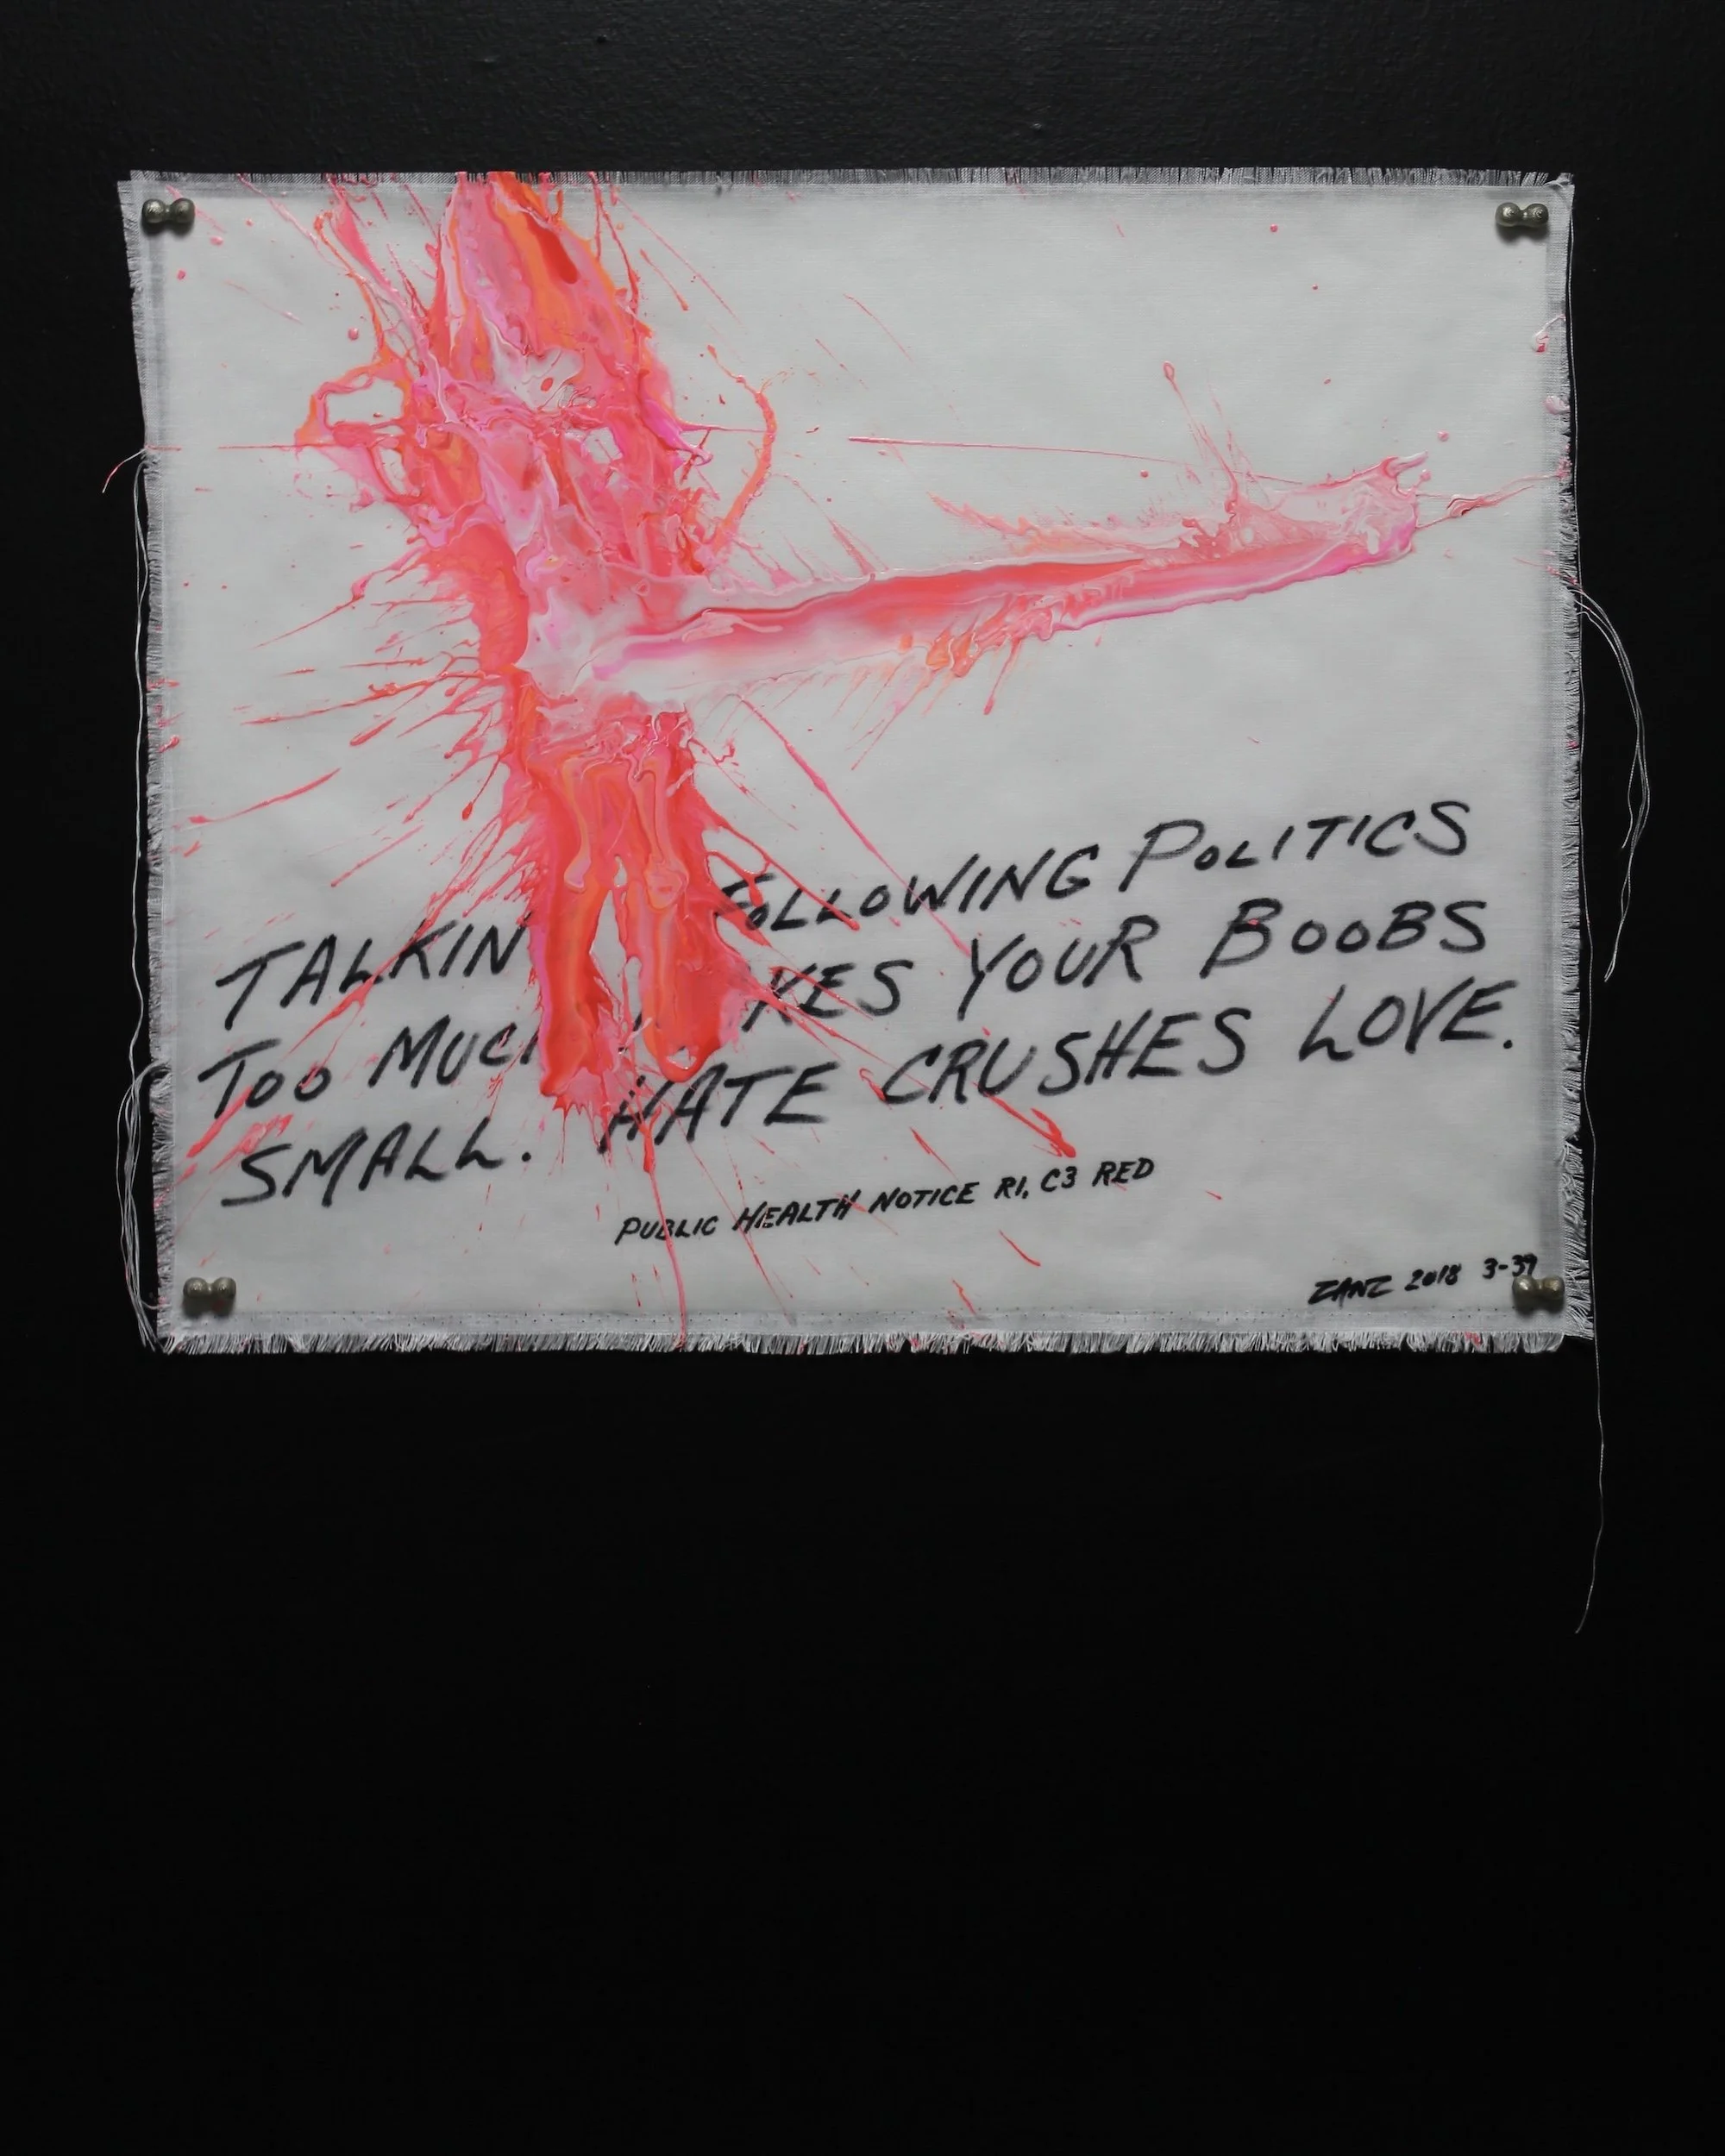 TALKIN' FOLLOWING POLITICS
TOO MUCH MAKES YOUR BOOBS
SMALL. HATE CRUSHES LOVE.
PUBLIC HEALTH NOTICE R1, C3 RED
ZANZ 2018 3-39